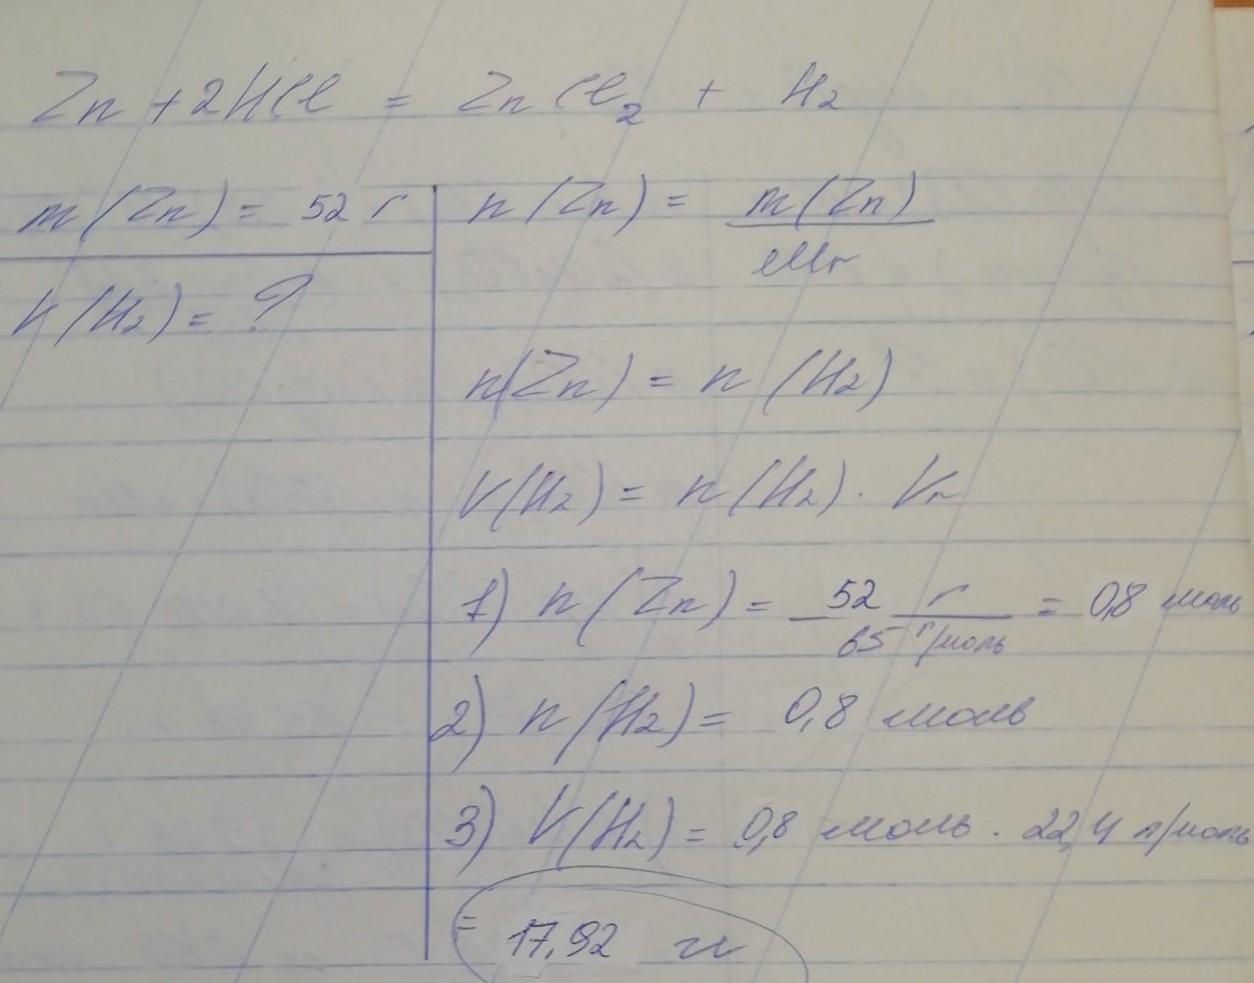 Zn + 2HCl = ZnCl₂ + H₂
m(Zn) = 52 г
V(H₂) = ?
n(Zn) = m(Zn) / Mr
n(Zn) = n(H₂)
V(H₂) = n(H₂) · Vn
1) n(Zn) = 52 г / 65 г/моль = 0,8 моль
2) n(H₂) = 0,8 моль
3) V(H₂) = 0,8 моль · 22,4 л/моль
= 17,92 л